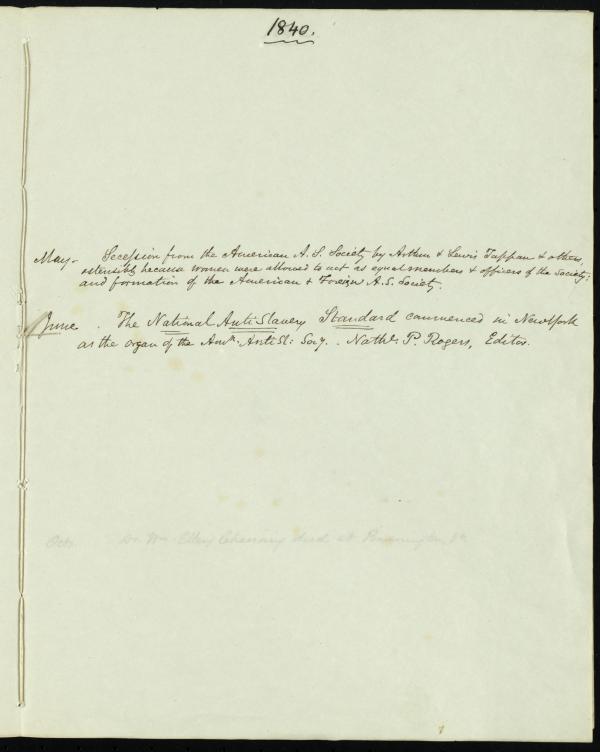 1840.
May - Secession from the American A. S. Society by Arthur & Lewis Tappan & others,
ostensibly because women were allowed to act as equal members & officers of the Society;
and formation of the American & Foreign A. S. Society.
June . The National AntiSlavery Standard commenced in New York
as the organ of the Amn. Anti Sl: Socy. . Nathl. P. Rogers, Editor.
Octr. Dr. Wm. Ellery Channing died at Bennington, Vt.